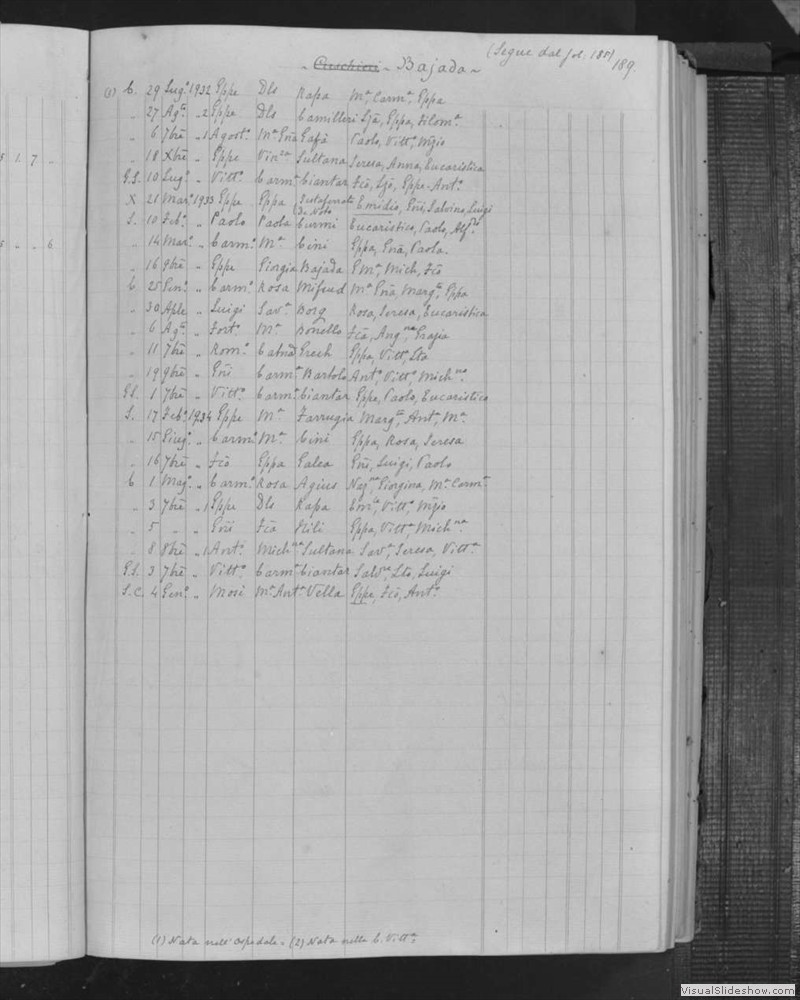 (Segue dal fol. 180) 189.
- Cuschieri - Bajada -
(1) C. 29 Lugº. 1932 Eppe Dls Rapa Mª. Carmª. Eppa
„ 27 Agº. „ 2 Eppe Dls Camilleri Ljā, Eppa, Filomª.
„ 6 7bre „ 1 Agostº. Mª Gna Gafà Paolo, Vittª. Mgio
„ 18 Xbre „ Eppe Vinza Sultana Teresa, Anna, Eucaristica
G.S. 10 Lugº. „ Vittº. Carmª. Ciantar Fcā, Ljā, Eppa-Antª.
X 21 Marº. 1933 Eppe Eppa Testaferrata De Noto Emidio, Gni, Salvino, Luigi
S. 10 Febº. „ Paolo Paola Curmi Eucaristico, Paolo, Alfdo
„ 14 Marº. „ Carmº. Mª. Cini Eppa, Gnā, Paola.
„ 16 9bre „ Eppe Giorgia Bajada Emª, Mich, Fcā
C 25 Genº. „ Carmº. Rosa Mifsud Mª Gnā, Margta, Eppa
„ 30 Aple „ Luigi Savª. Borg Rosa, Teresa, Eucaristica
„ 6 Agº. „ Fortº. Mª. Bonello Fcā, Angna Grazia
„ 11 7bre „ Romº. Catna Grech Eppa, Vittª, Lta
„ 19 9bre „ Gni Carmª. Bartolo Antª, Vittª, Michna.
G.S. 1 7bre „ Vittº. Carmª. Ciantar Eppe, Paolo, Eucaristico
S. 17 Febº. 1934 Eppe Mª. Farrugia Margta, Antª, Mª.
„ 15 Giugº. „ Carmº. Mª. Cini Eppa, Rosa, Teresa
„ 16 7bre „ Fcō Eppa Galea Gni, Luigi, Paolo
C 1 Magº. „ Carmº. Rosa Agius Giorgina, Mª Carmª
„ 3 7bre „ 1 Eppe Dls Rapa Emla, Vittº. Mgio
„ 5 „ „ Gni Fcā Hili Eppa, Vittª Michna.
„ 8 8bre „ 1 Antº. Michna Sultana Savª, Teresa, Vittª.
G.S. 3 7bre „ Vittº. Carmª. Ciantar Salvre, Lto, Luigi
S.C. 4 Genº. „ Mosè Mª. Antª. Vella Eppa, Fcā, Antª.
(1) Nata nell' Ospedale. (2) Nata nella C. Vittª.
VisualSlideshow.com